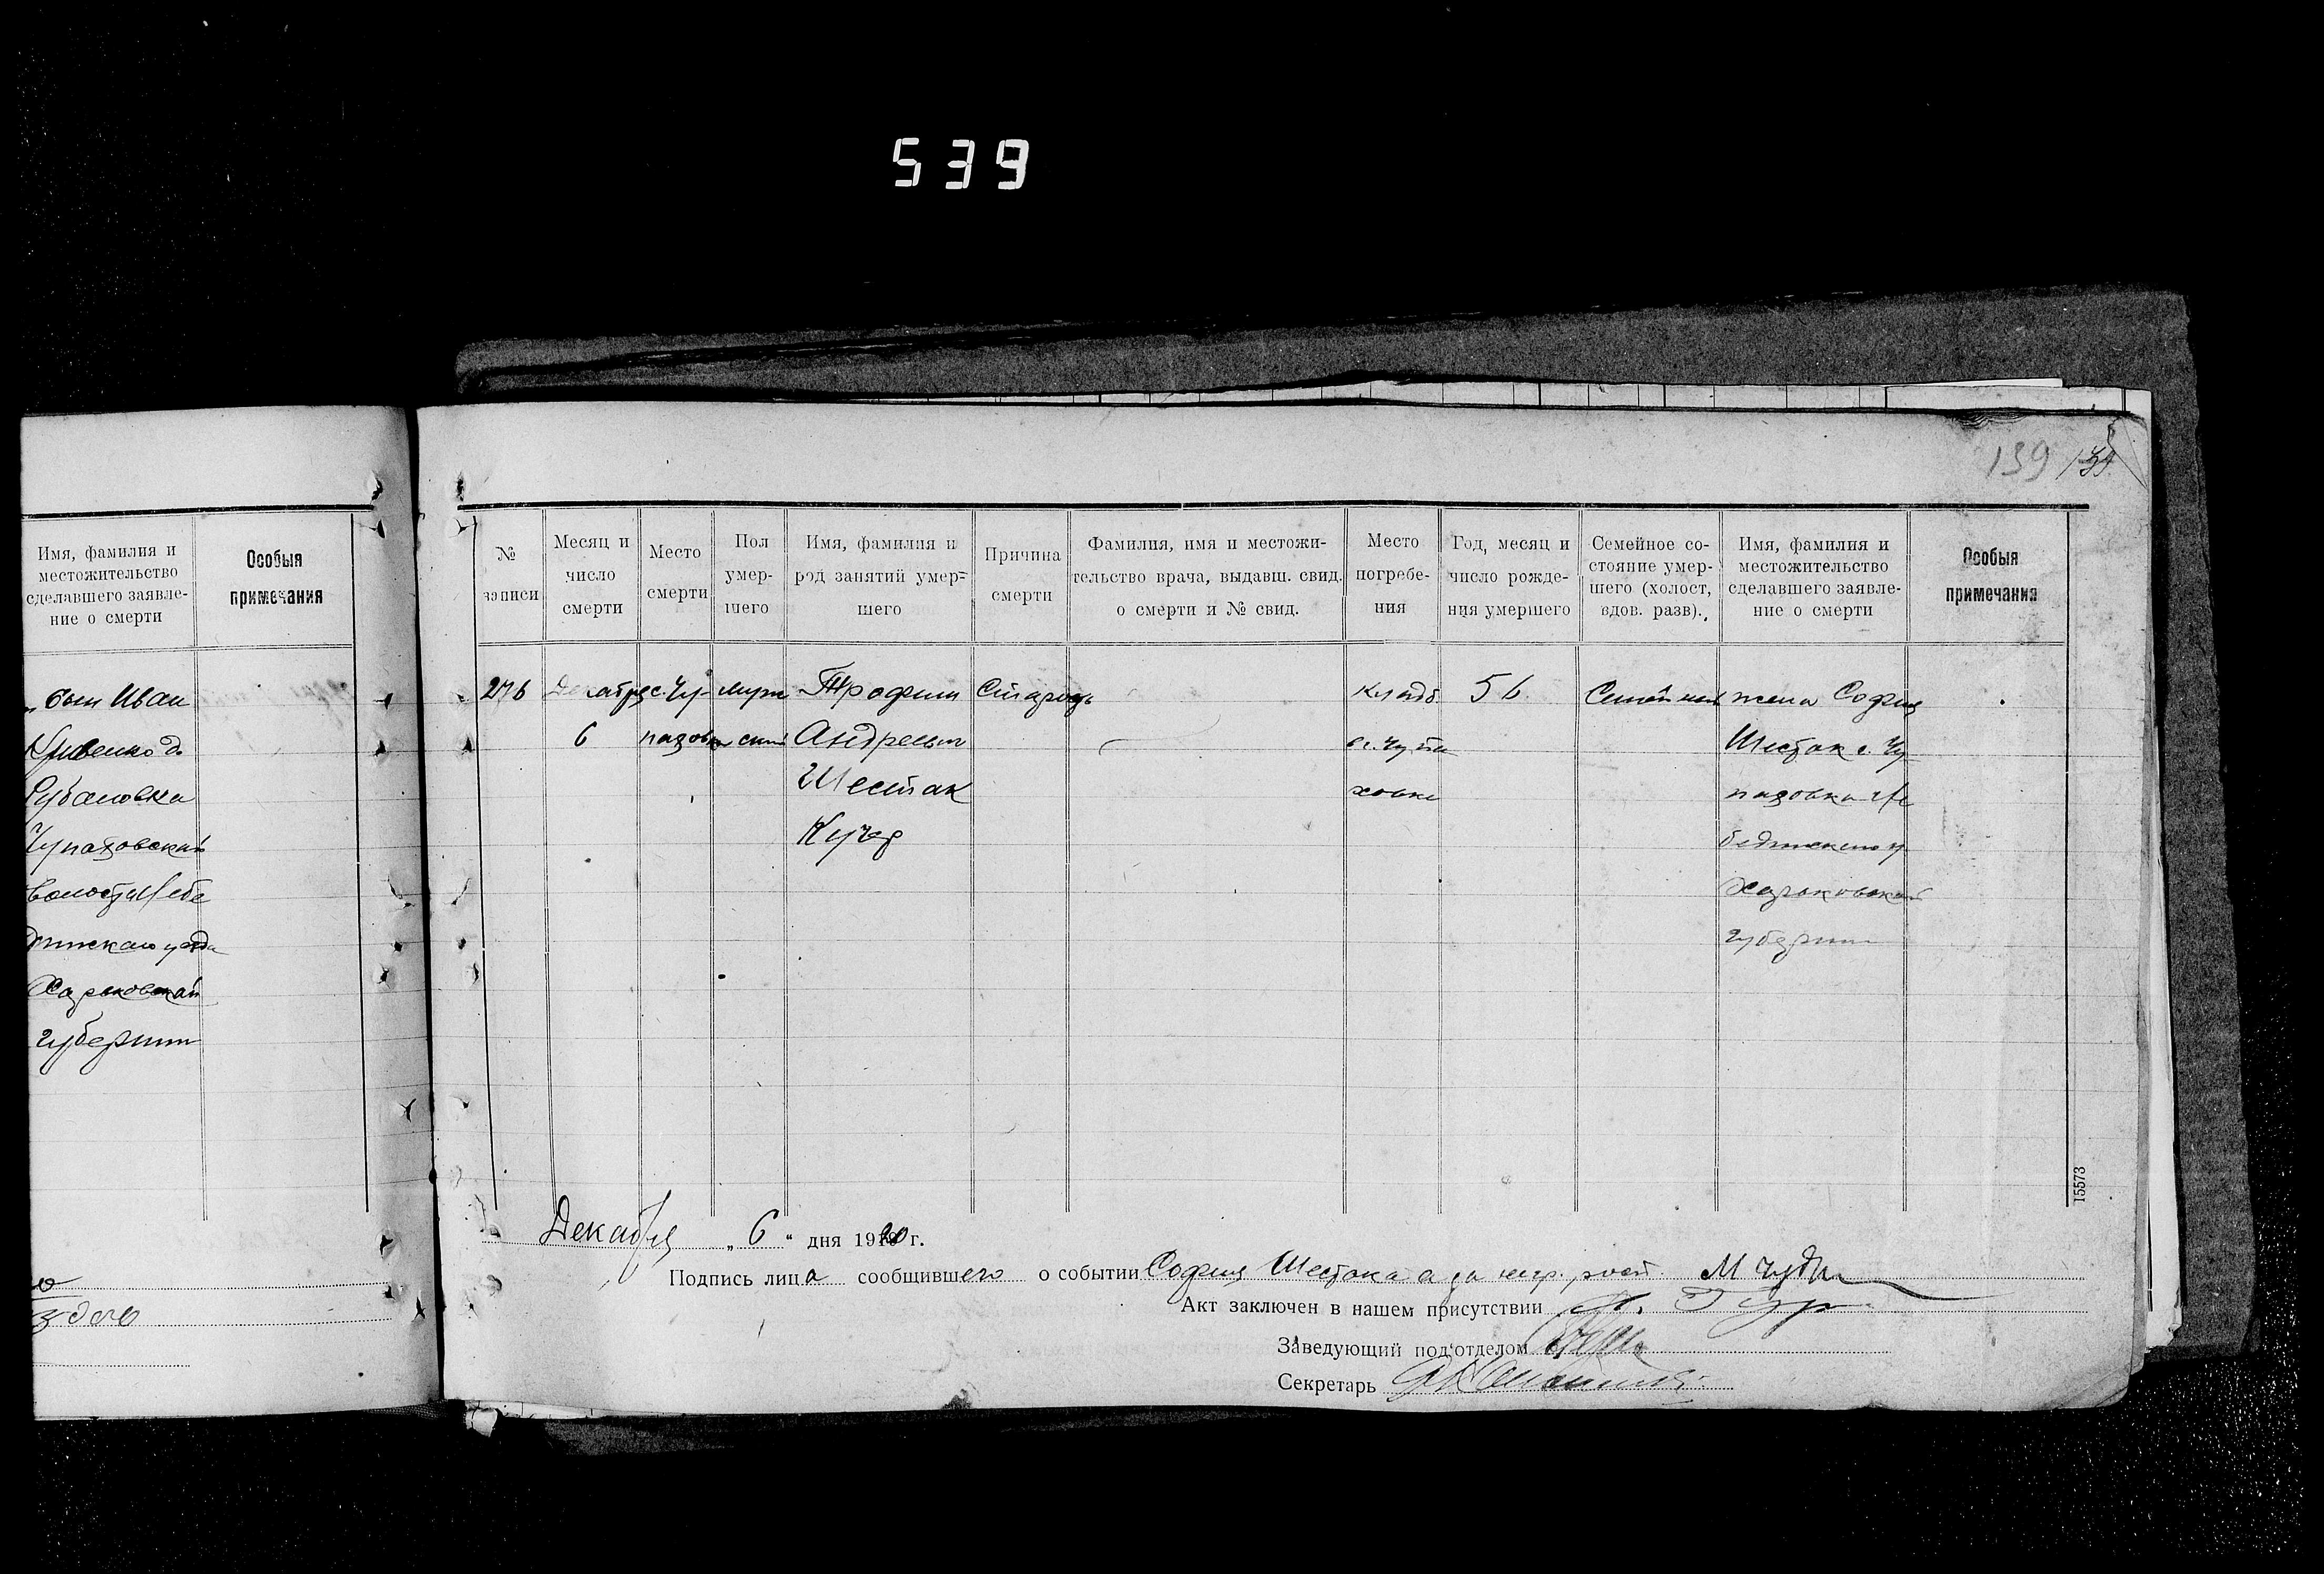 539
139
Имя, фамилия и
местожительство
сделавшего заявле-
ние о смерти
Особыя
примечания
сын Иван
Рубановка
Чупаховский
волости Лебе
динскаго уезда
Харьковской
губернии
№
записи
Месяц и
число
смерти
Место
смерти
Пол
умер-
шего
Имя, фамилия и
род занятий умер-
шего
Причина
смерти
Фамилия, имя и местожи-
тельство врача, выдавш. свид.
о смерти и № свид.
Место
погребе-
ния
Год, месяц и
число рожде-
ния умершего
Семейное со-
стояние умер-
шего (холост,
вдов. разв).
Имя, фамилия и
местожительство
сделавшего заявле-
ние о смерти
Особыя
примечания
276
Декабря
6
с. Чу-
паховка
муж
ской
Трофим
Андреевич
Шестак
Кучер
Старость
кладб.
с. Чупа
ховки
56
Семейный
жена София
Шестак с. Чу
паховка Ле
бединского у
Харьковской
губернии
Декабря „ 6 “ дня 1920 г.
Подпись лица сообщившего о событии София Шестака а за негр. росп.
Акт заключен в нашем присутствии
Заведующий под'отделом
Секретарь
15573